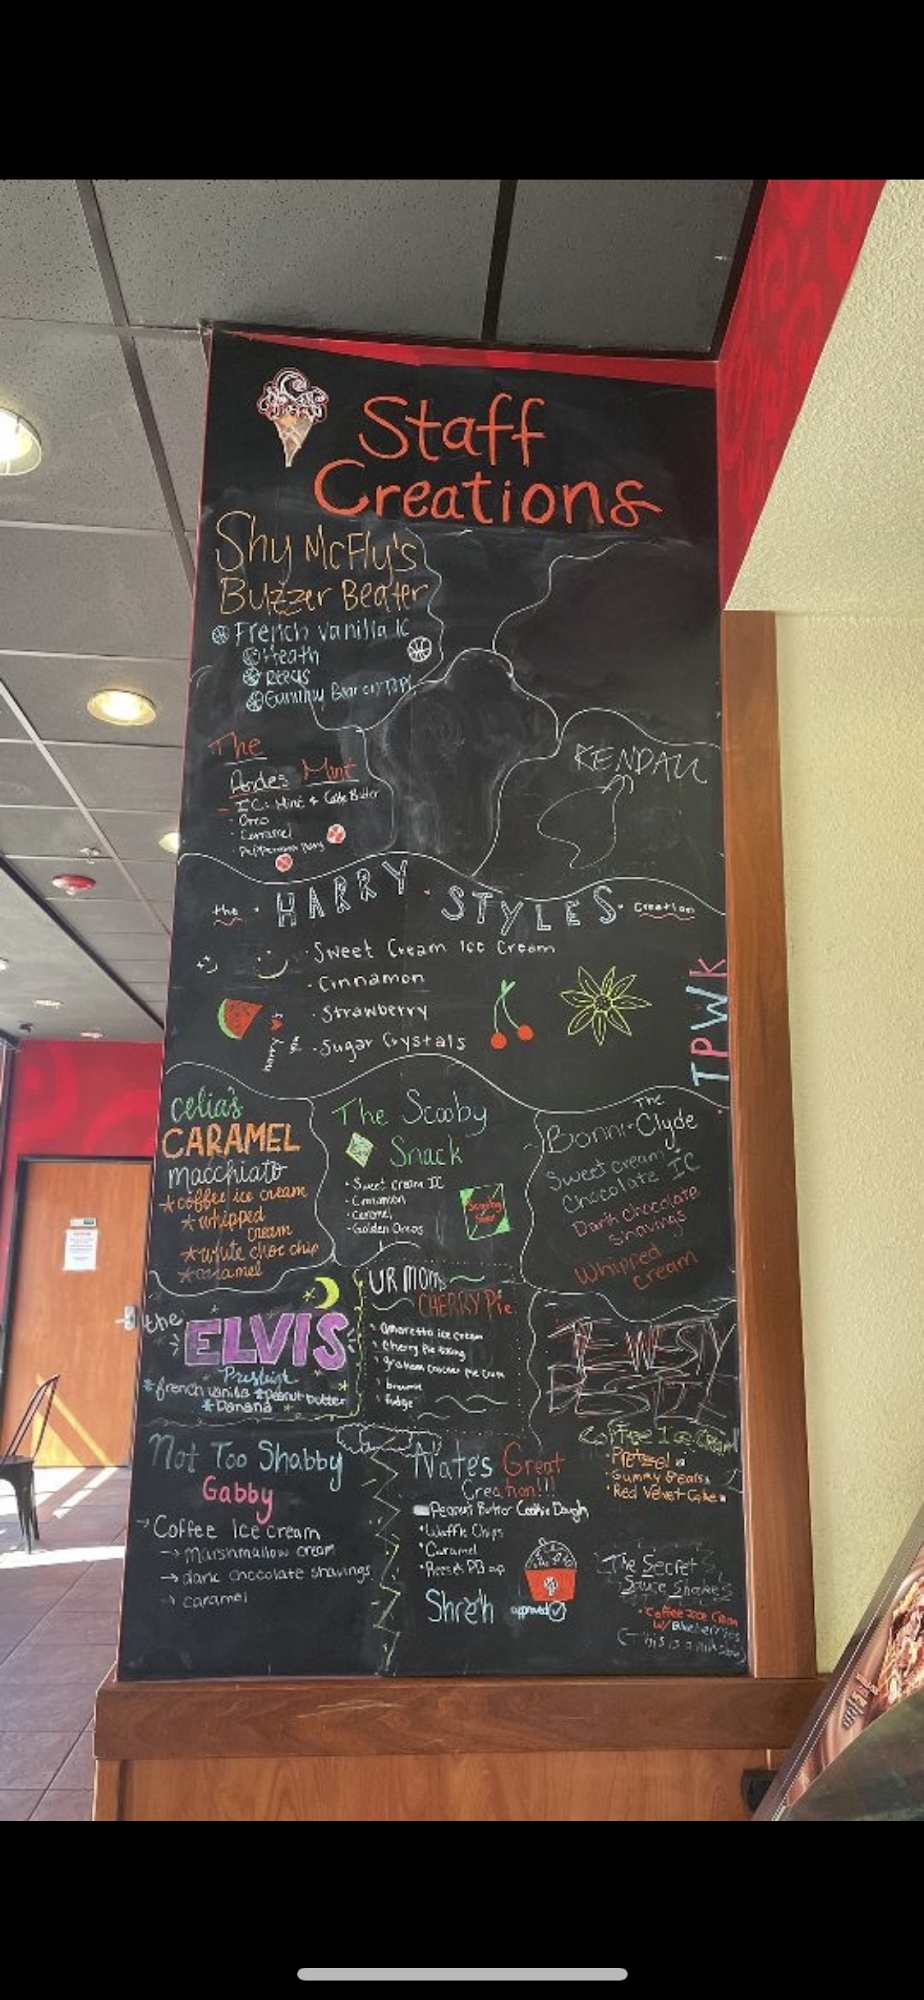 Staff
Creations
Shy McFly's
Buzzer Beater
French Vanilla IC
Heath
Gummy Bear on Top!
The
Andes Mint
IC: Mint + Cake Batter
Oreo
Carramel
KENDALL
the HARRY STYLES Creation
Sweet Cream Ice Cream
Cinnamon
Strawberry
Sugar Crystals
TPWK
celia's
CARAMEL
macchiato
coffee ice cream
whipped
cream
white choc chip
caramel
The Scooby
Snack
Sweet cream IC
Cinnamon
Caramel
Golden Oreos
The
Bonni Clyde
Sweet cream
Chocolate IC
Dark Chocolate
Shavings
Whipped
Cream
the
ELVIS
french vanilla peanut butter
banana
UR MOM's
CHERRY Pie
Amaretto ice cream
cherry pie filling
graham cracker pie crust
brownie
fudge
Coffee Ice Cream
Pretzel
Gummy Bears
Red Velvet Cake
Not Too Shabby
Gabby
Coffee Ice cream
marshmallow cream
dark chocolate shavings
caramel
Nate's Great
Creation!!!
Peanut Butter Cookie Dough
Waffle Chips
Caramel
Reese's PB cup
approved
The Secret
Sauce Shakes
Coffee Ice Cream
w/ Blueberries
(This is a milkshake)